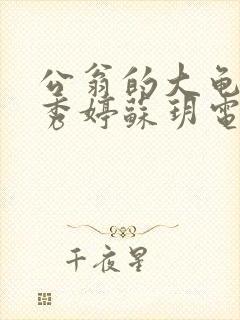 公翁的大龟
秀婷蘇玥電
千夜星